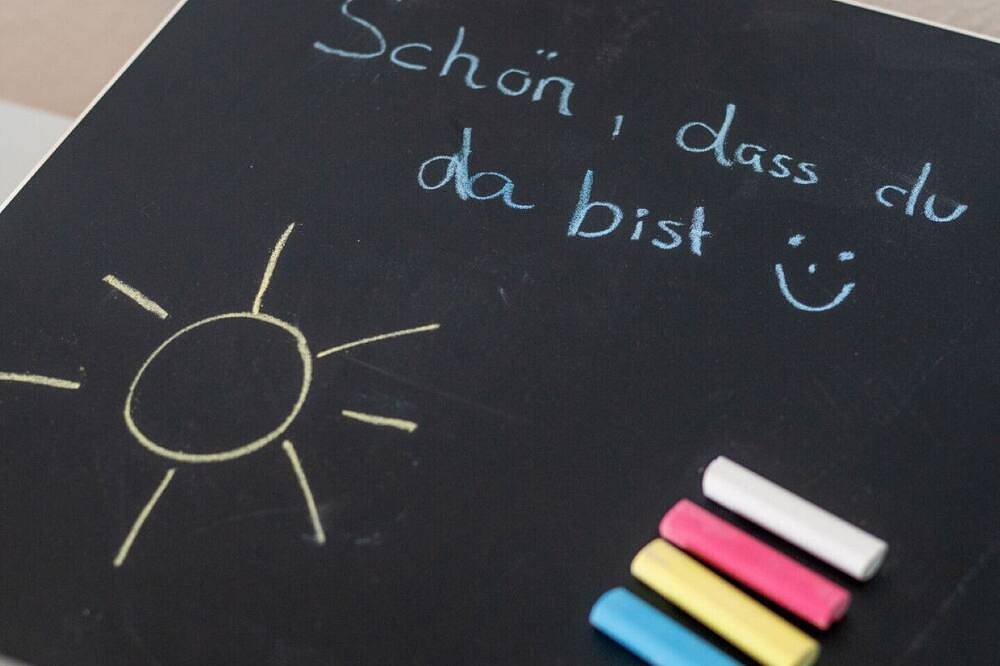 Schön, dass du
da bist